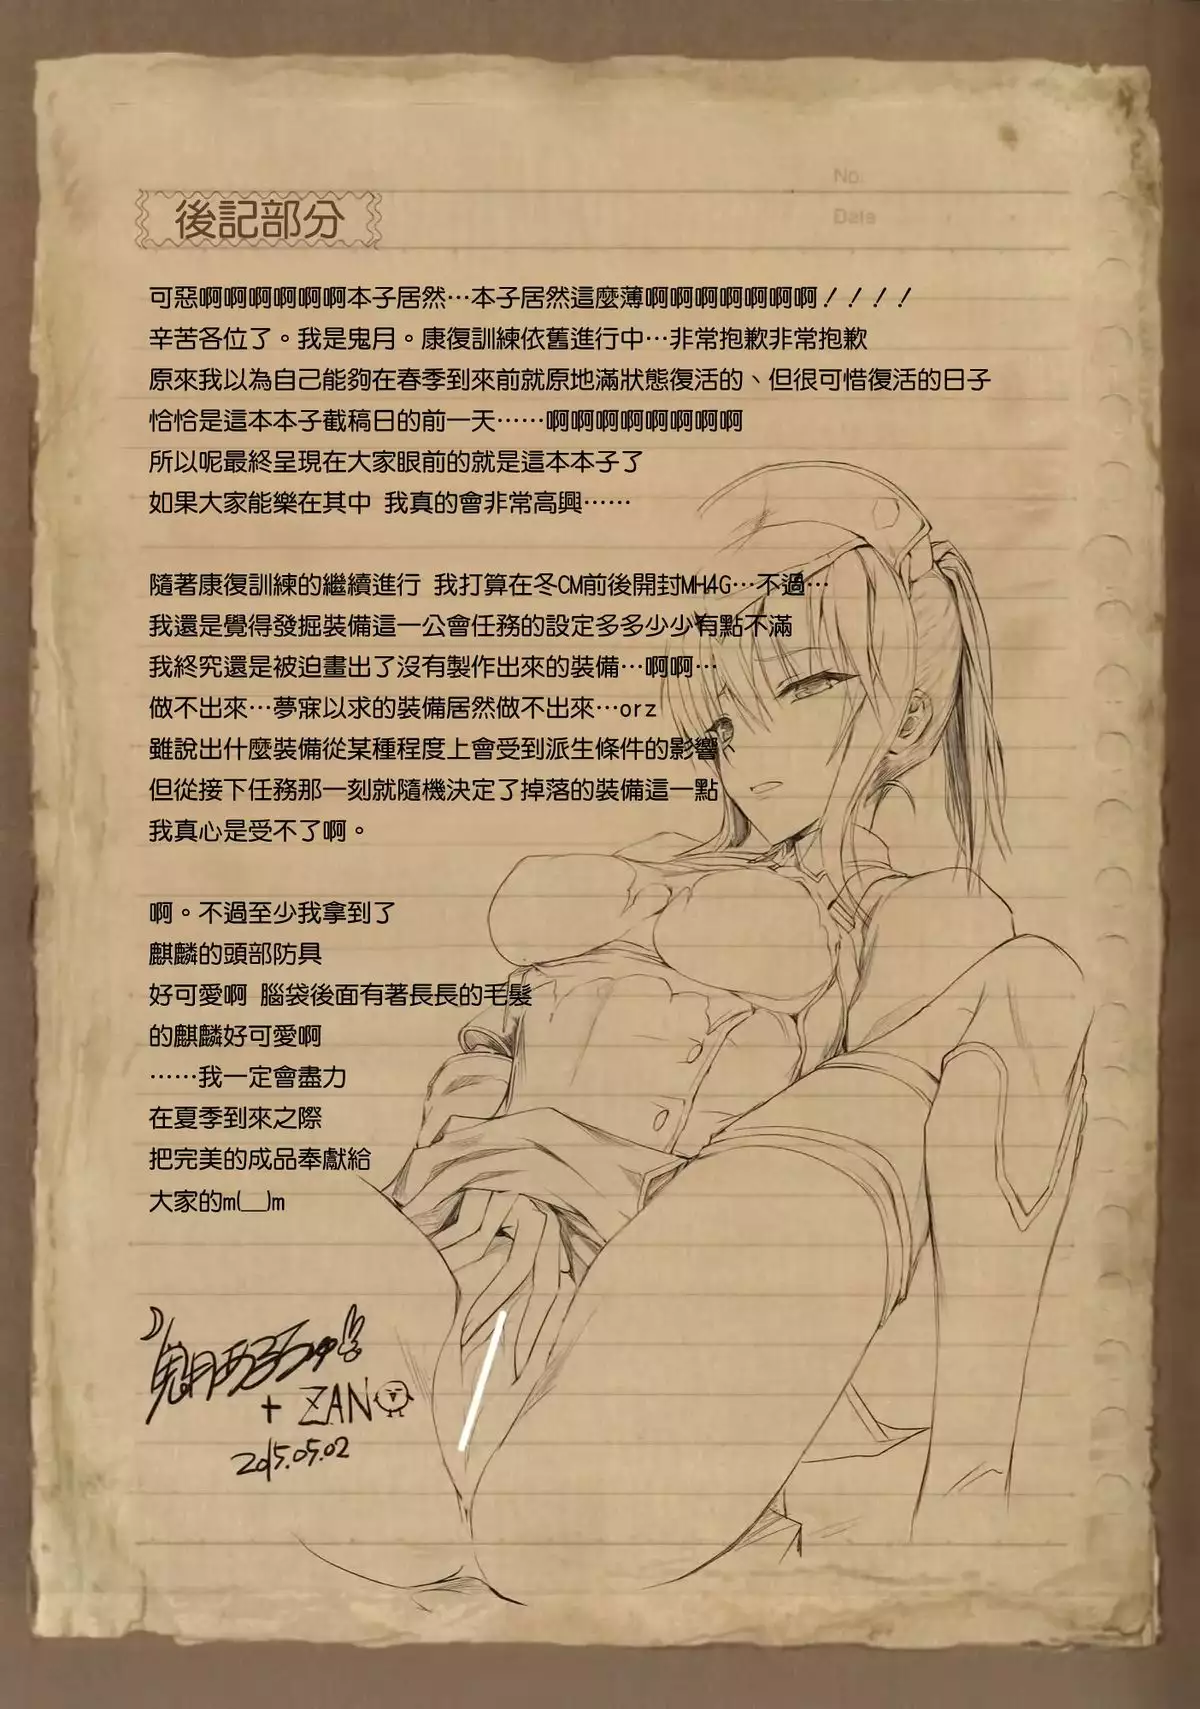 No.
Date
後記部分
可惡啊啊啊啊啊啊本子居然…本子居然這麼薄啊啊啊啊啊啊啊！！！！
辛苦各位了。我是鬼月。康復訓練依舊進行中…非常抱歉非常抱歉
原來我以為自己能夠在春季到來前就原地滿狀態復活的、但很可惜復活的日子
恰恰是這本本子截稿日的前一天……啊啊啊啊啊啊啊啊
所以呢最終呈現在大家眼前的就是這本本子了
如果大家能樂在其中 我真的會非常高興……
隨著康復訓練的繼續進行 我打算在冬CM前後開封MH4G…不過…
我還是覺得發掘裝備這一公會任務的設定多多少少有點不滿
我終究還是被迫畫出了沒有製作出來的裝備…啊啊…
做不出來…夢寐以求的裝備居然做不出來…orz
雖說出什麼裝備從某種程度上會受到派生條件的影響、
但從接下任務那一刻就隨機決定了掉落的裝備這一點
我真心是受不了啊。
啊。不過至少我拿到了
麒麟的頭部防具
好可愛啊 腦袋後面有著長長的毛髮
的麒麟好可愛啊
……我一定會盡力
在夏季到來之際
把完美的成品奉獻給
大家的m(__)m
+ ZAN
2015.05.02